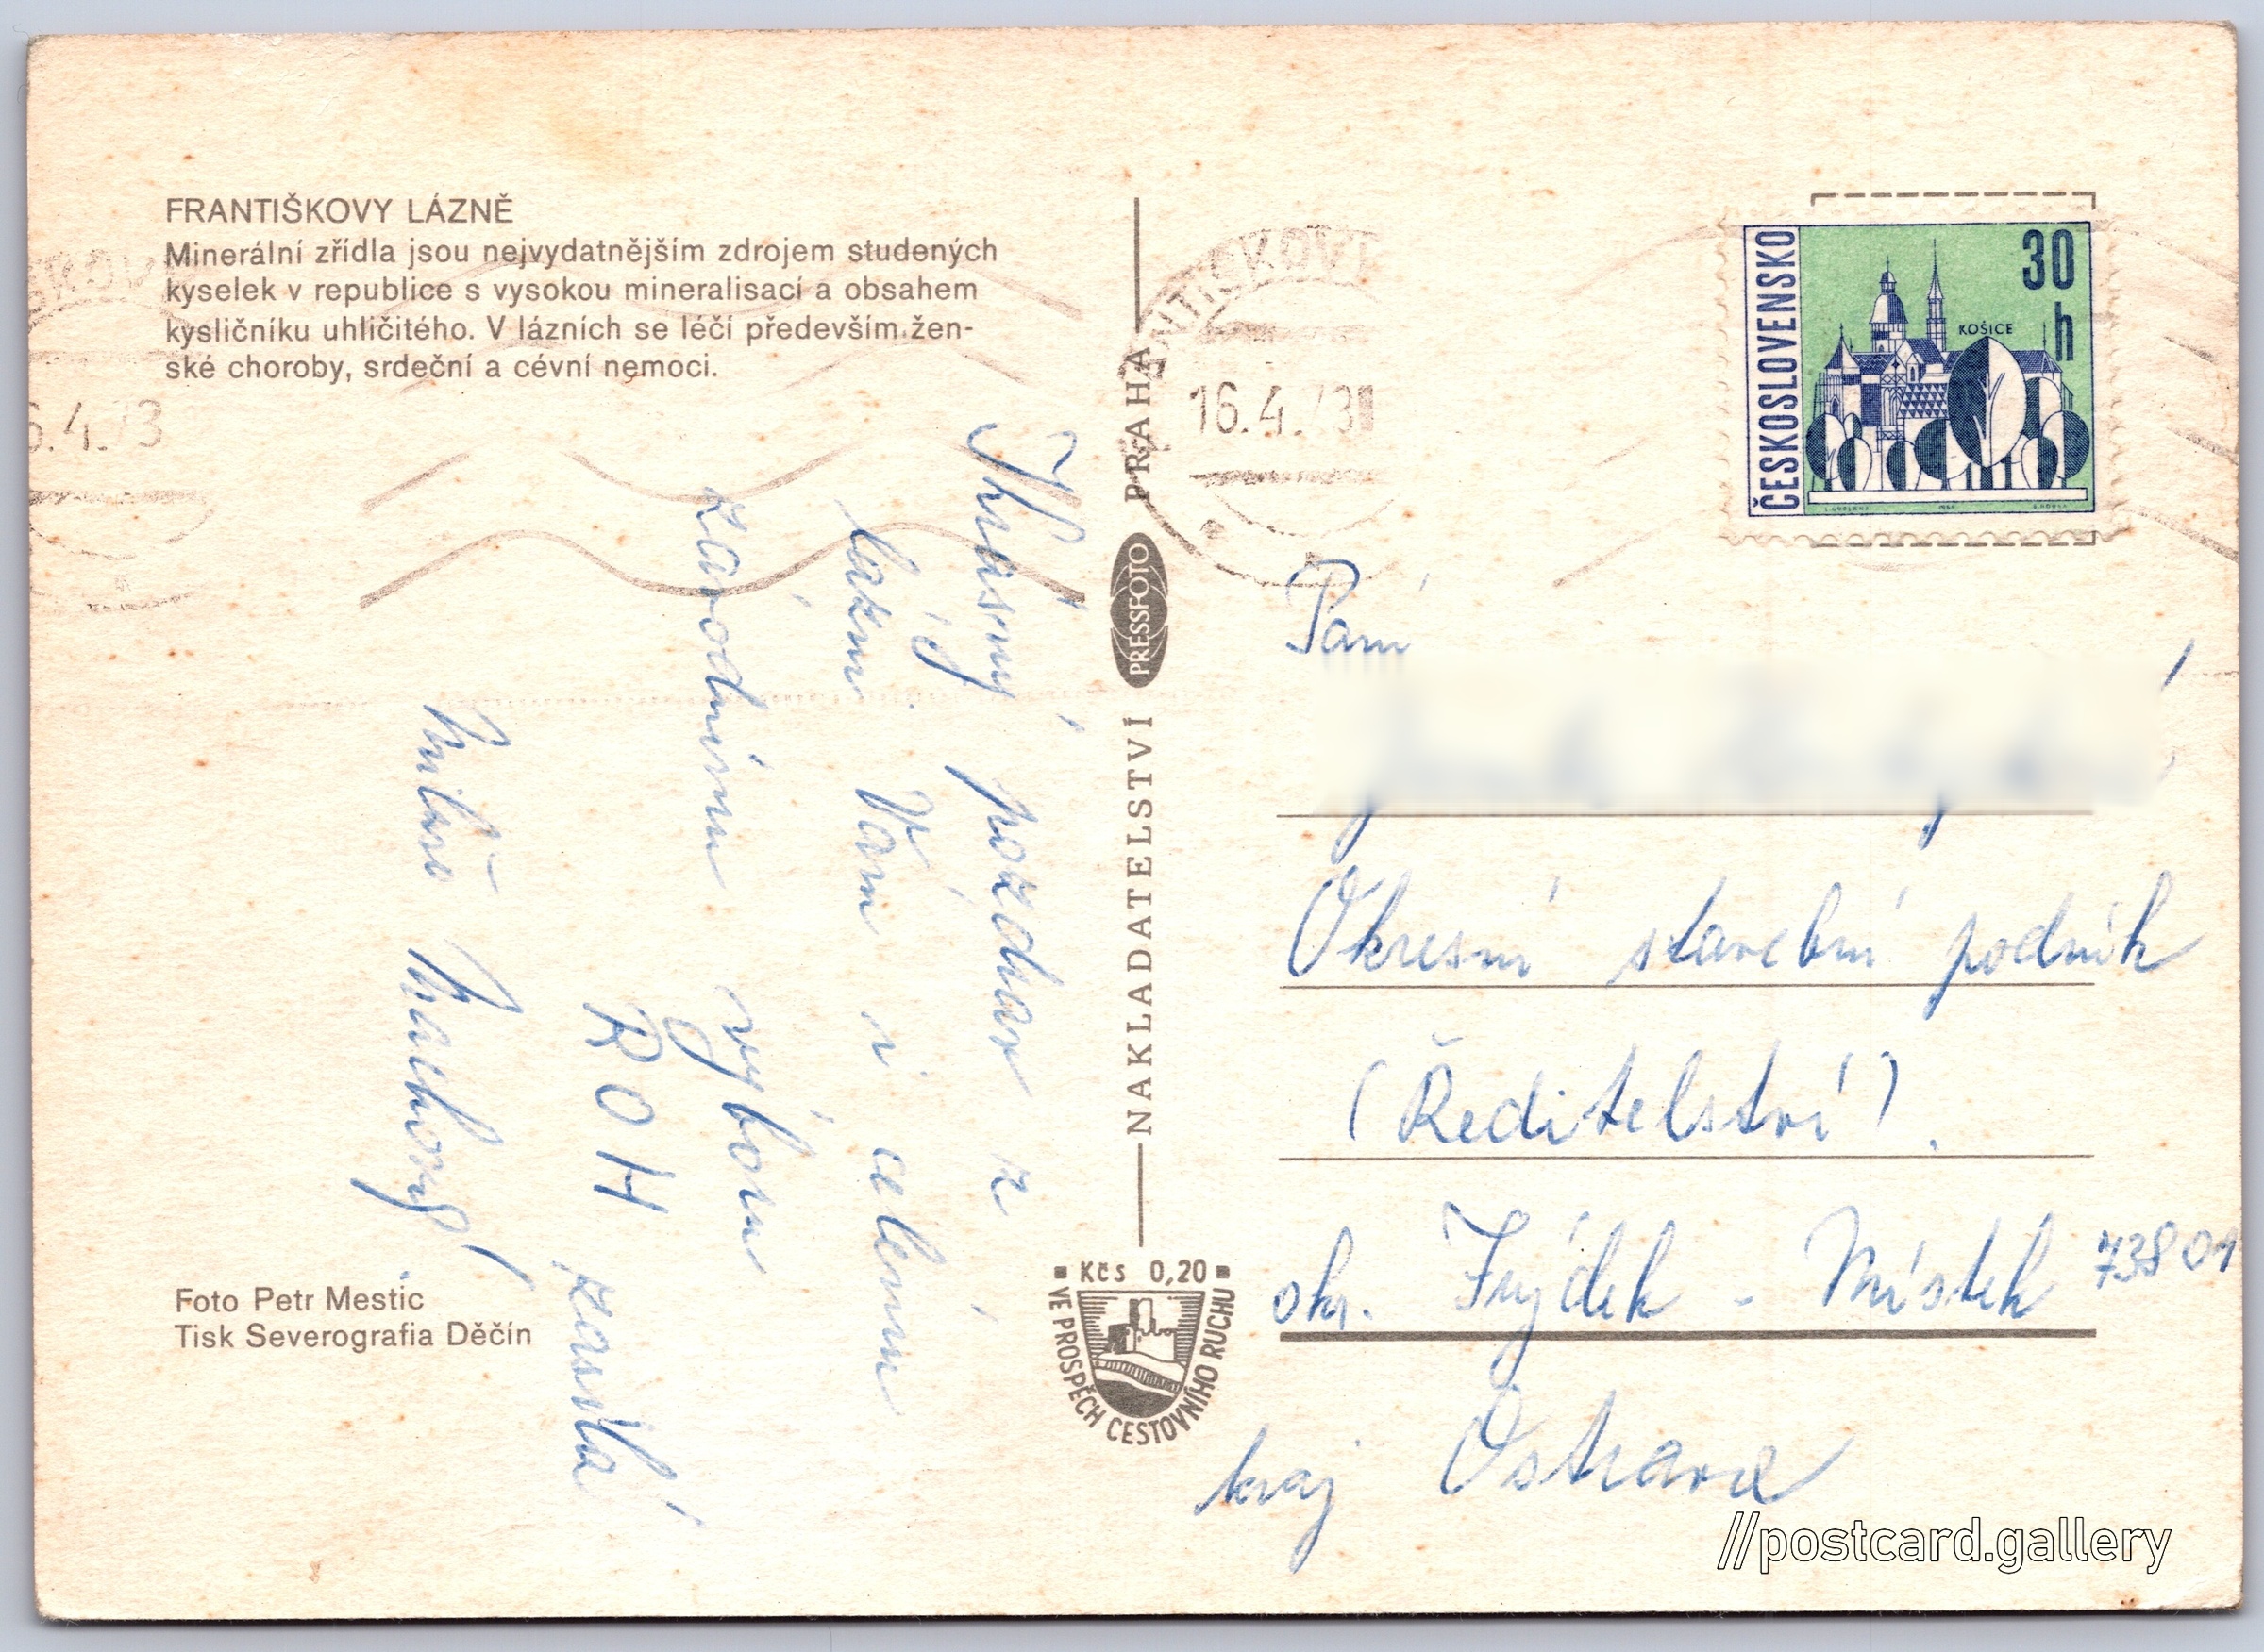 FRANTIŠKOVY LÁZNĚ
Minerální zřídla jsou nejvydatnějším zdrojem studených
kyselek v republice s vysokou mineralisací a obsahem
kysličníku uhličitého. V lázních se léčí především žen-
ské choroby, srdeční a cévní nemoci.
Krásný pozdrav z
lázní Vám i celému
závodnímu výboru
ROH zasílá
Foto Petr Mestic
Tisk Severografia Děčín
NAKLADATELSTVÍ PRESSFOTO PRAHA
Kčs 0,20
VE PROSPĚCH CESTOVNÍHO RUCHU
16.4.73
ČESKOSLOVENSKO
30
h
KOŠICE
Paní
Okresní stavební podnik
(Ředitelství).
okr. Frýdek - Místek 73801
kraj Ostrava
//postcard.gallery